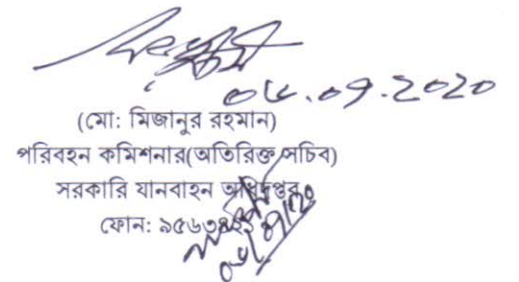 ০৮.০৭.২০২০
(মো: মিজানুর রহমান)
পরিবহন কমিশনার(অতিরিক্ত সচিব)
সরকারি যানবাহন অধিদপ্তর
ফোন: